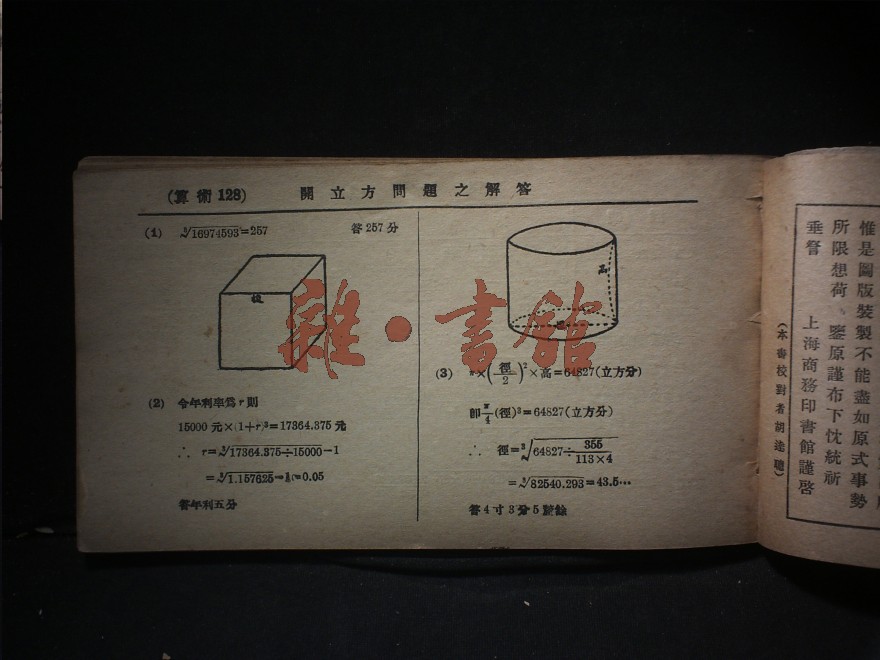 (算術128) 開立方問題之解答
(1) ∛16974593=257 答257分
稜
(2) 令年利率爲r則
15000元×(1+r)³=17364.375元
∴ r=∛17364.375÷15000−1
=∛1.157625−1=0.05
答年利五分
高
徑
(3) π×(徑/2)²×高=64827(立方分)
即π/4(徑)³=64827(立方分)
∴ 徑=∛64827÷355/113×4
=∛82540.293=43.5…
答4寸3分5釐餘
雜·書館
惟是圖版裝製不能盡如原式事勢
所限想荷 鑒原謹布下忱統祈
垂詧 上海商務印書館謹啓
(本書校對者胡達聰)